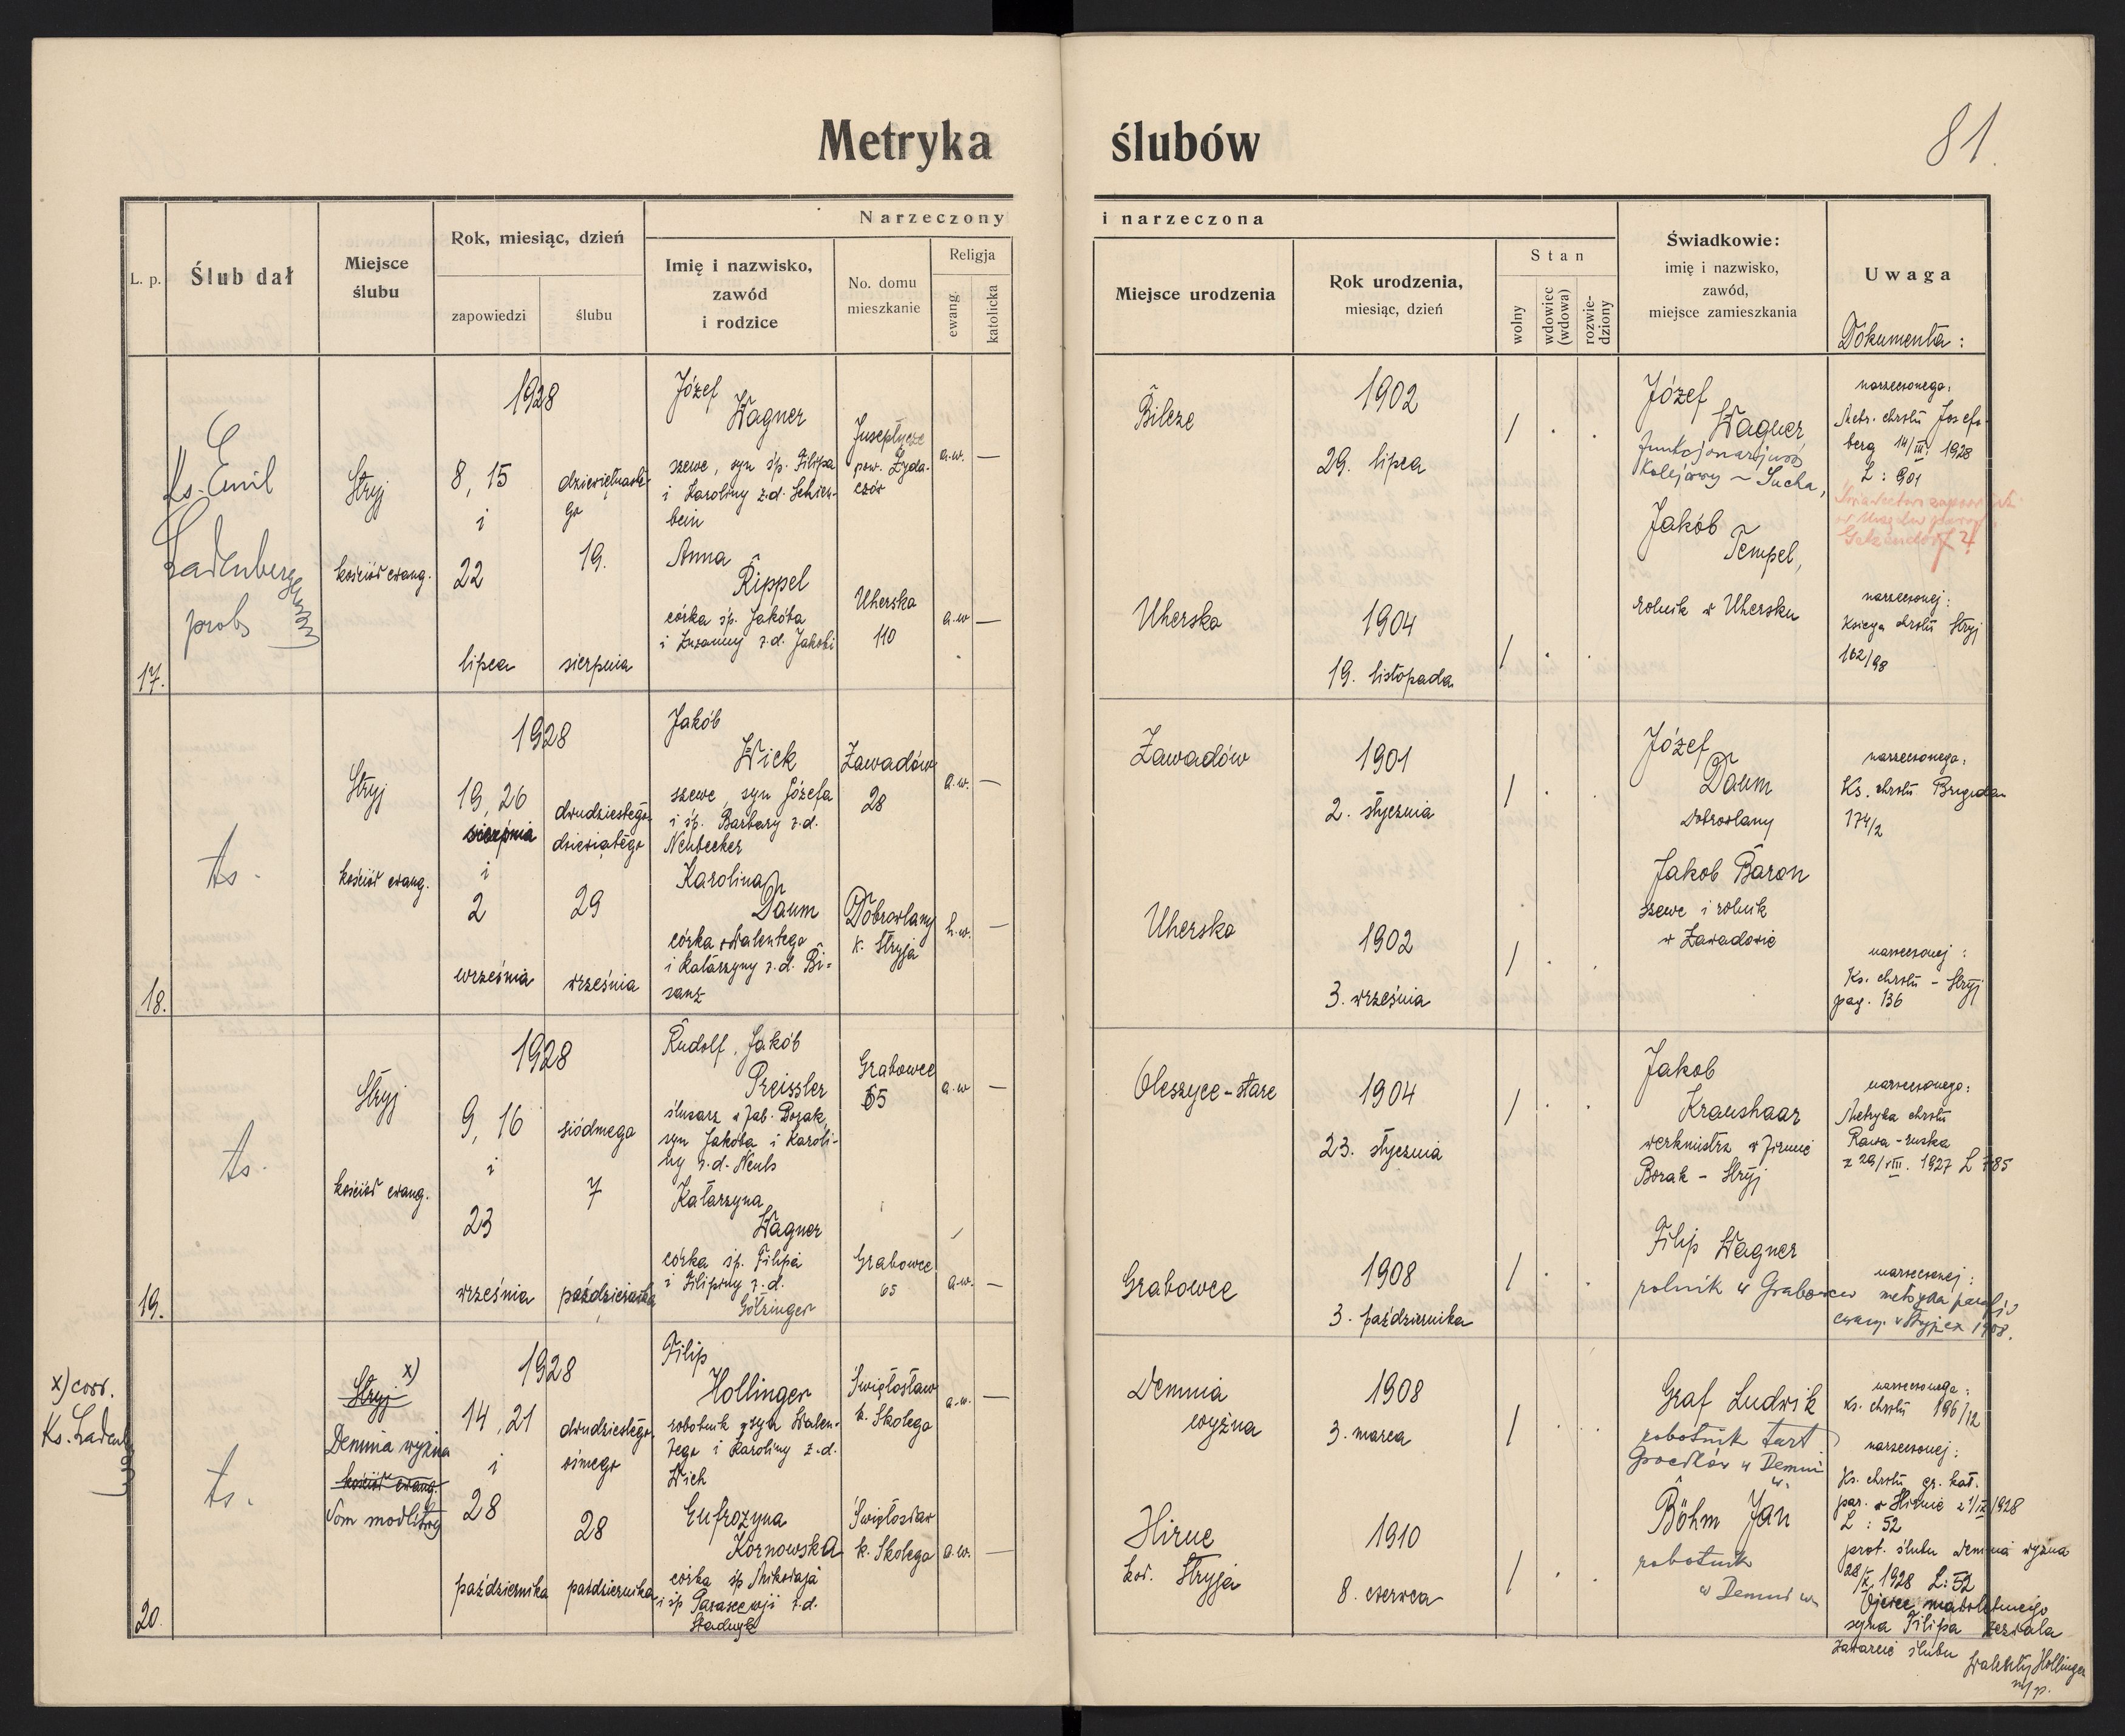 Metryka ślubów
81.
L. p.
Ślub dał
Miejsce
ślubu
Rok, miesiąc, dzień
zapowiedzi
ślubu
Narzeczony
Imię i nazwisko,
zawód
i rodzice
No. domu
mieszkanie
Religja
ewang.
katolicka
i narzeczona
Miejsce urodzenia
Rok urodzenia,
miesiąc, dzień
Stan
wolny
wdowiec
(wdowa)
rozwie-
dziony
Świadkowie:
imię i nazwisko,
zawód,
miejsce zamieszkania
Uwaga
Dokumenta:
17.
Ks. Emil
Ladenberger
prob
Stryj
kościół ewang.
1928
8, 15
i
22
lipca
dziewiętnaste-
go
19.
sierpnia
Józef
Wagner
szewc, syn śp. Filipa
i Karoliny z.d. Schien-
bein
Juseptycze
pow. Żyda-
czów
a.w. —
Anna
Rippel
córka śp. Jakóba
i Zuzanny z.d. Jakobi
Uhersko
110
a.w —
Bilcze
1902
29. lipca
/ . .
Uhersko
1904
19. listopada
/ . .
Józef
Wagner,
funkcjonarjusz
kolejowy – Sucha,
Jakób
Tempel,
rolnik w Uhersku
narzeczonego:
Metr. chrztu Josefs-
berg 14/III. 1928
L: 901
Gelsendorf
narzeczonej:
Księga chrztu Stryj
162/98
18.
ts.
Stryj
kościół ewang.
1928
19, 26
sierpnia
i
2
września
dwudziestego
dziewiątego
29
września
Jakób
Wick
szewc, syn Józefa
i śp. Barbary z.d.
Neubecker
Zawadów
28
a.w. —
Karolina
Daum
córka Walentego
i Katarzyny z.d. Bi-
sanz
Dobrowlany
k. Stryja
h.w. —
Zawadów
1901
2. stycznia
/ . .
Uhersko
1902
3. września
/ . .
Józef
Daum
Dobrowlany
Jakob Baron
szewc i rolnik
w Zawadowie
narzeczonego:
Ks. chrztu Brigidau
174/2
narzeczonej:
Ks. chrztu – Stryj
pag. 136
19.
ts.
Stryj
kościół ewang.
1928
9, 16
i
23
września
siódmego
7
października
Rudolf, Jakób
Preissler
ślusarz w fab. Borak,
syn Jakóba i Karoli-
ny z.d. Neubs
Grabowce
65
a.w —
Katarzyna
Wagner
córka śp. Filipa
i Filipiny z.d.
Götzinger
Grabowce
65
a.w. —
Oleszyce-stare
1904
23. stycznia
/ . .
Grabowce
1908
3. października
/ . .
Jakob
Kraushaar
werkmistrz w firmie
Borak – Stryj
Filip Wagner
rolnik w Grabowcu
narzeczonego:
Metryka chrztu
Rawa-ruska
z 29/VIII. 1927 L 785
narzeczonej:
metryka parafji
ewang. w Stryju z 1908.
x) corr.
Ks. Ladenberger
20.
ts.
Stryj x)
Demnia wyżna
kościół ewang.
Dom modlitwy
1928
14, 21
i
28
października
dwudziestego
ósmego
28
października
Filip
Hollinger
robotnik, syn Walen-
tego i Karoliny z.d.
Wich
Świętosław
k. Skolego
a.w. —
Eufrozyna
Kornowska
córka śp Mikołaja
i śp Parascewji z.d.
Stadnyk
Świętosław
k. Skolego
a.w. —
Demnia
wyżna
1908
3. marca
/ . .
Hirne
koł. Stryja
1910
8. czerwca
/ . .
Graf Ludwik
robotnik tart.
Groedlów w Demni
w.
Böhm Jan
robotnik
w Demni w.
narzeczonego:
Ks. chrztu 196/12
narzeczonej:
Ks. chrztu gr. kat.
par. w Hirnie z 1/IX 1928
L: 52
prot. ślubu Demnia wyżna
28/X 1928 L: 52
Ojciec małoletniego
syna Filipa zezwala
zawarcie ślubu
Walenty Hollinger
m/p.